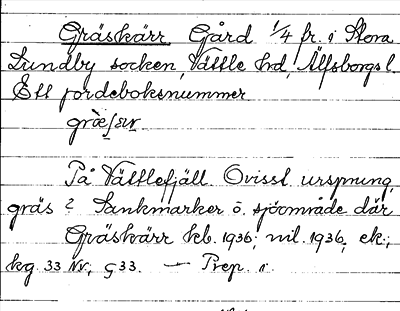 Gräskärr Gård 1/4 fr. i Stora
Lundby socken, Vättle hd, Älfsborgs l.
Ett jordeboksnummer
græ̀ʃær.
På Vättlefjäll. Ovisst ursprung,
gräs? Sankmarker o. sjöområde där
Gräskärr kb. 1936; mil. 1936, ek.;
kg 33 Nv, ς 33. — Prep. i.